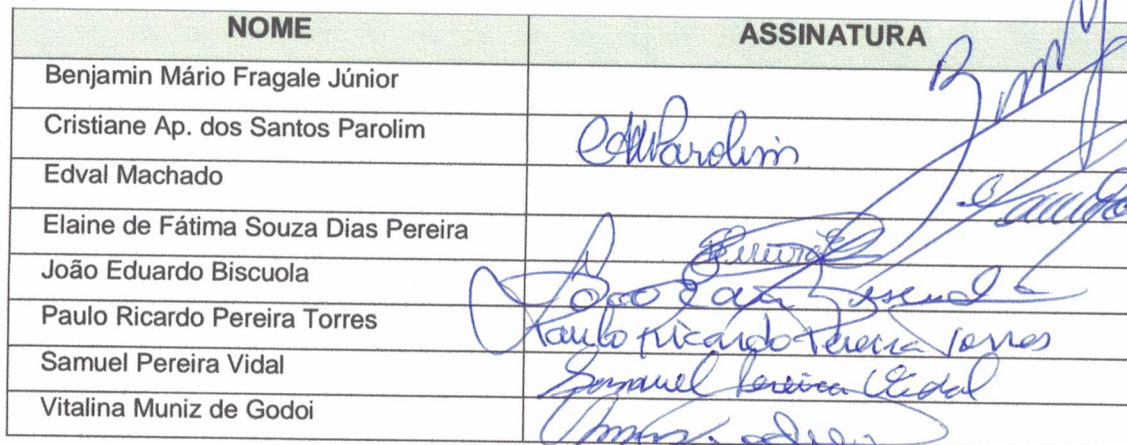 NOME ASSINATURA
Benjamin Mário Fragale Júnior
Cristiane Ap. dos Santos Parolim Parolim
Edval Machado
Elaine de Fátima Souza Dias Pereira
João Eduardo Biscuola João
Paulo Ricardo Pereira Torres Paulo Ricardo Pereira Torres
Samuel Pereira Vidal Samuel Pereira Vidal
Vitalina Muniz de Godoi